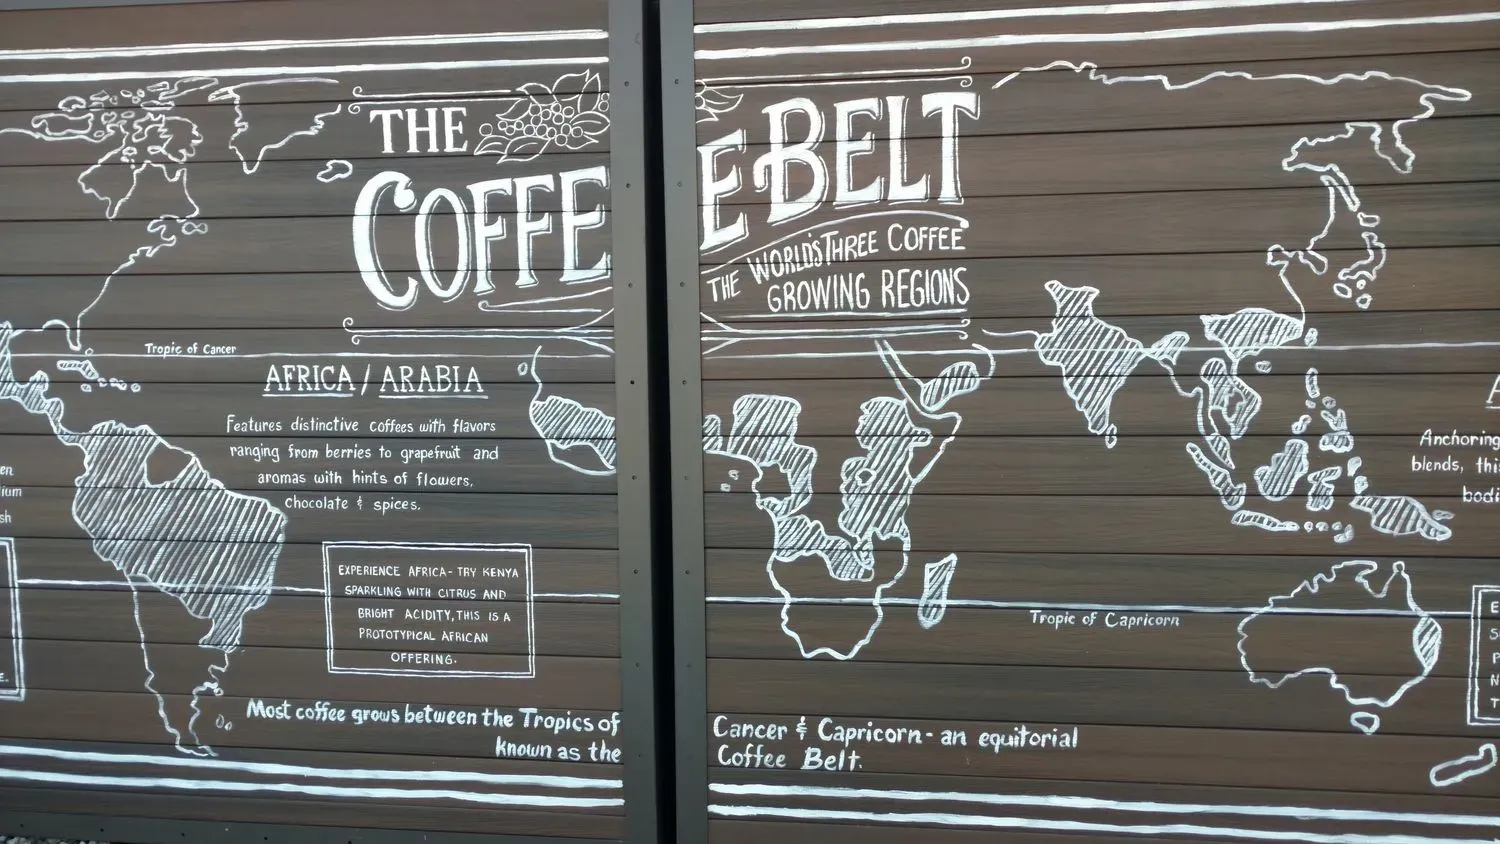 THE
COFFEE BELT
THE WORLD'S THREE COFFEE
GROWING REGIONS
Tropic of Cancer
AFRICA / ARABIA
Features distinctive coffees with flavors
ranging from berries to grapefruit and
aromas with hints of flowers,
chocolate & spices.
EXPERIENCE AFRICA - TRY KENYA
SPARKLING WITH CITRUS AND
BRIGHT ACIDITY, THIS IS A
PROTOTYPICAL AFRICAN
OFFERING.
Tropic of Capricorn
Anchoring
blends,
Most coffee grows between the Tropics of Cancer & Capricorn - an equitorial
known as the Coffee Belt.